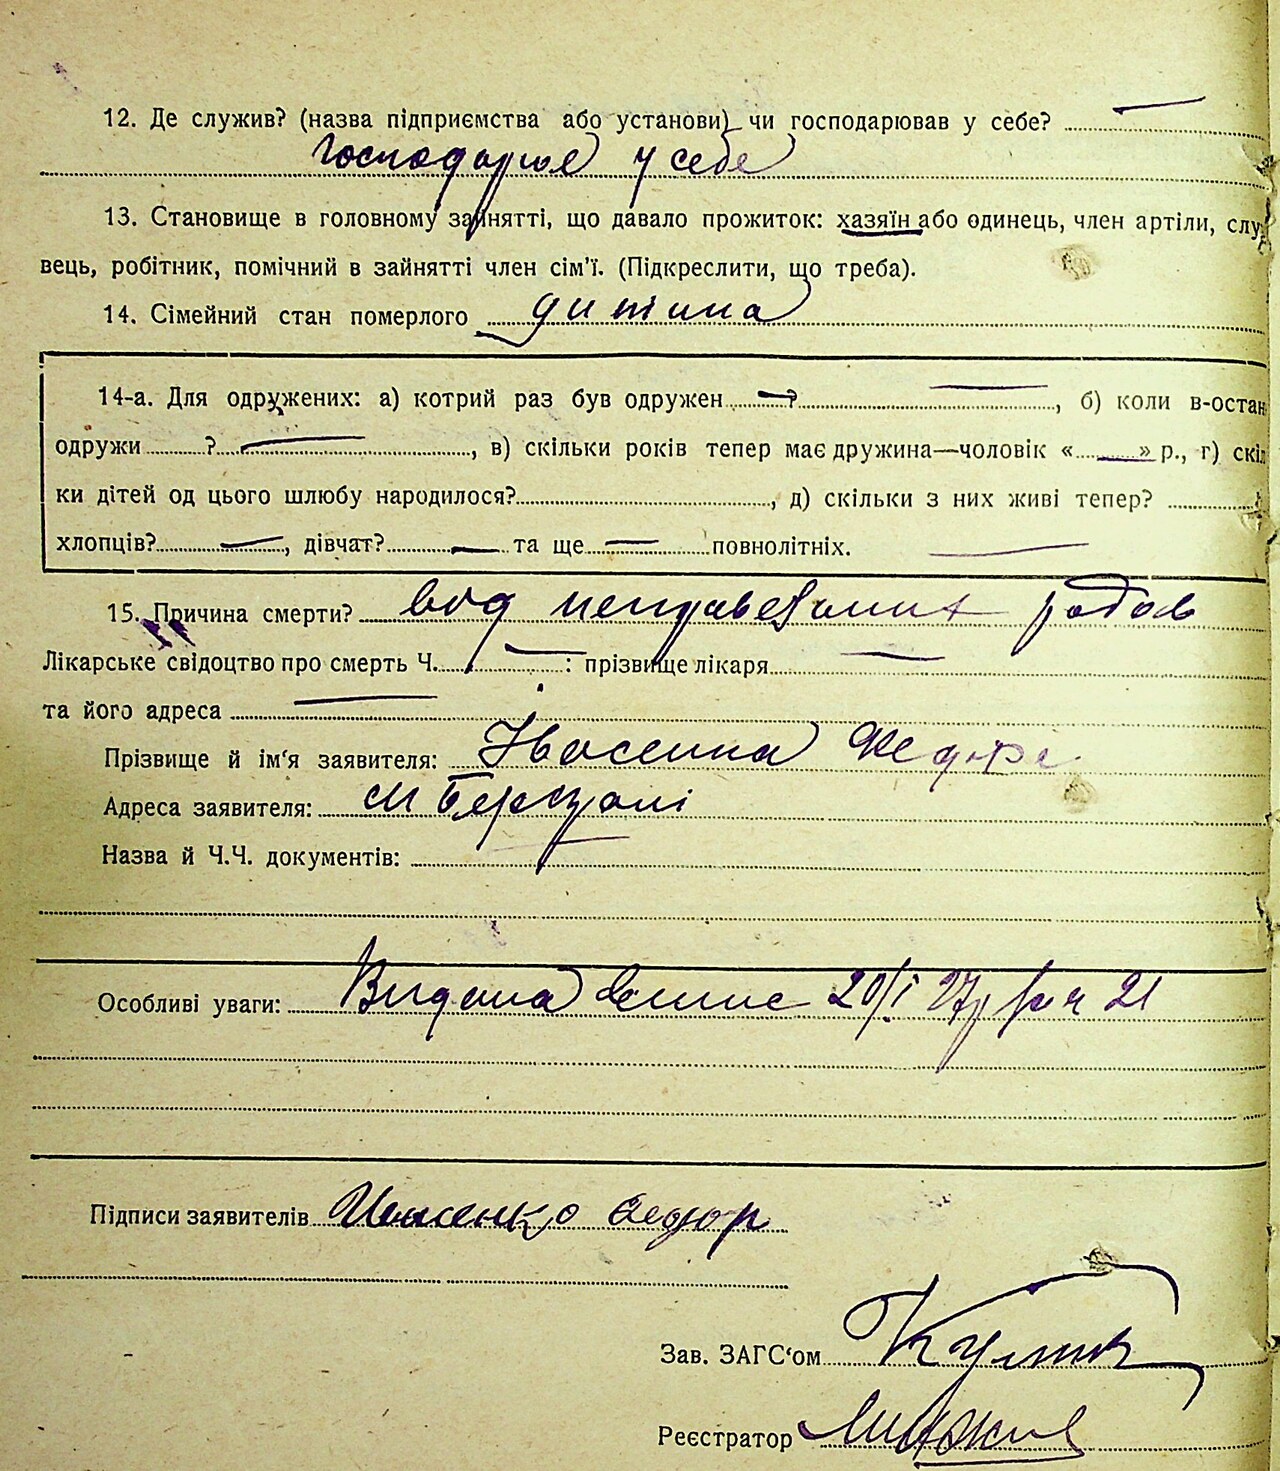 12. Де служив? (назва підприємства або установи) чи господарював у себе?
Господарює у себе
13. Становище в головному зайнятті, що давало прожиток: хазяїн або одинець, член артіли, служ
вець, робітник, помічний в зайнятті член сім'ї. (Підкреслити, що треба).
14. Сімейний стан померлого дитина
14-а. Для одружених: а) котрий раз був одружен ?, б) коли в-остан
одружи ?, в) скільки років тепер має дружина—чоловік « » р., г) скіл
ки дітей од цього шлюбу народилося?, д) скільки з них живі тепер?
хлопців?, дівчат? та ще повнолітніх.
15. Причина смерти? від неправельних родов
Лікарське свідоцтво про смерть Ч. : прізвище лікаря
та його адреса
Прізвище й ім'я заявителя:
Адреса заявителя: м
Назва й Ч.Ч. документів:
Особливі уваги: Видана 20/I 27р 21
Підписи заявителів Федор
Зав. ЗАГС'ом Кулик
Реєстратор